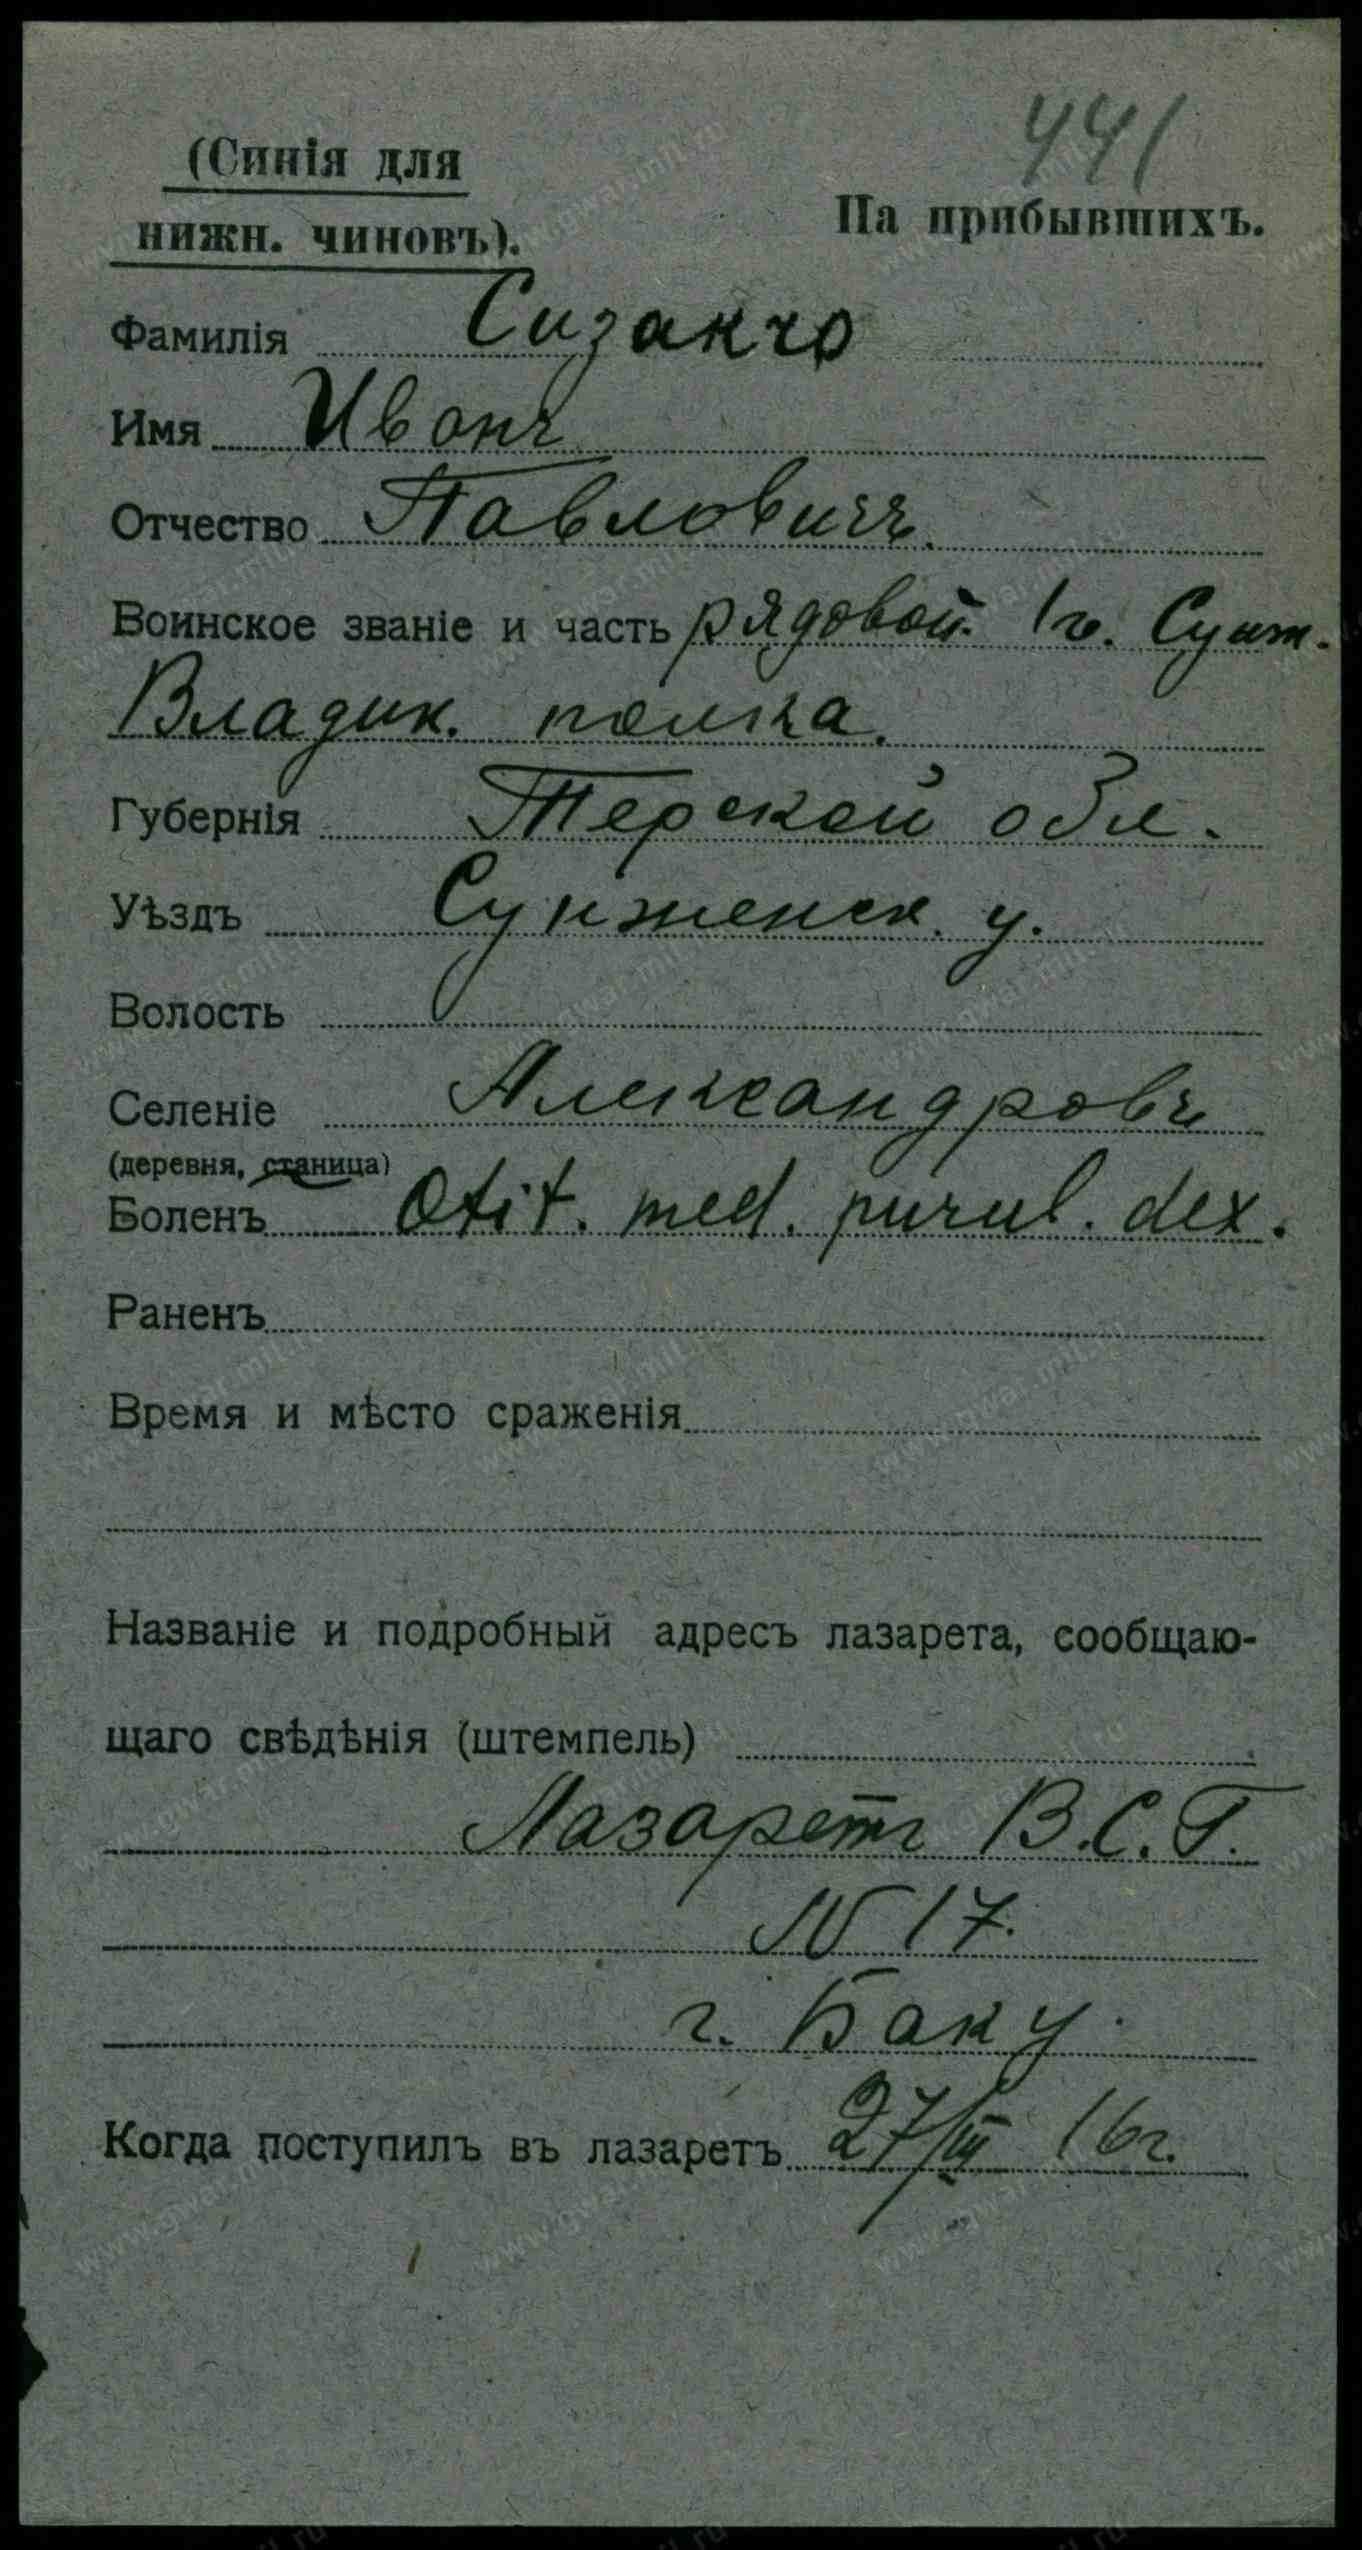 441
(Синія для
нижн. чиновъ).
На прибывшихъ.
Фамилія Сизакчо
Имя Иванъ
Отчество Павловичъ.
Воинское званіе и часть рядовой 1го. Сунж.
Владик. полка.
Губернія Терской обл.
Уѣздъ Сунженск. у.
Волость
Селеніе Александровъ
(деревня, станица)
Боленъ Otit. med. purul. dex.
Раненъ
Время и мѣсто сраженія
Названіе и подробный адресъ лазарета, сообщаю-
щаго свѣдѣнія (штемпель)
Лазаретъ В.С.Г.
№ 17.
г. Баку.
Когда поступилъ въ лазаретъ 27/III 16г.